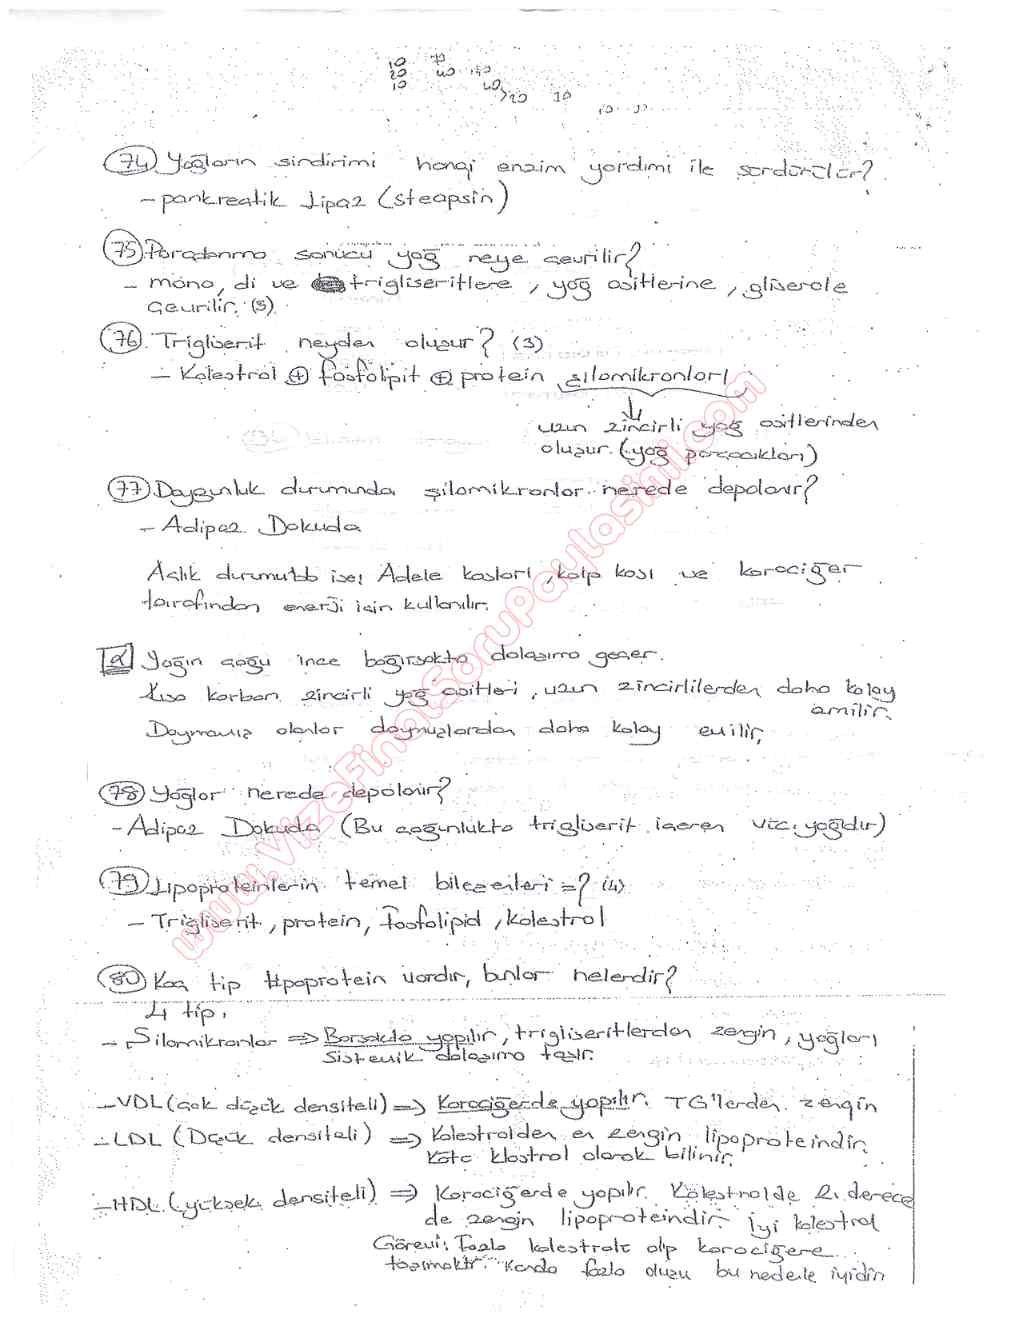 10 70
20 40
10 40
20 10
74) Yağların sindirimi hangi enzim yardımı ile sürdürülür?
- pankreatik lipaz (steapsin)
75) Parçalanma sonucu yağ neye çevrilir?
- mono, di ve trigliseritlere, yağ asitlerine, gliserole
çevrilir. (3)
76) Trigliserit neyden oluşur? (3)
- Kolestrol + fosfolipit + protein şilomikronları
uzun zincirli yağ asitlerinden
oluşur. (yağ parçacıkları)
77) Doygunluk durumunda şilomikronlar nerede depolanır?
- Adipaz Dokuda
Açlık durumu ise; Adele kasları, kalp kası ve karaciğer
tarafından enerji için kullanılır.
Yağın çoğu ince bağırsakta dolaşıma geçer.
Kısa karbon zincirli yağ asitleri, uzun zincirlilerden daha kolay
emilir.
Doymamış olanlar doymuşlardan daha kolay emilir,
78) Yağlar nerede depolanır?
- Adipaz Dokuda (Bu çoğunlukta trigliserit içeren vüc. yağıdır)
79) Lipoproteinlerin temel bileşenleri =? (4)
- Trigliserit, protein, fosfolipid, kolestrol
80) Kaç tip lipoprotein vardır, bunlar nelerdir?
4 tip,
- Şilomikronlar => Barsakta yapılır, trigliseritlerden zengin, yağları
sistemik dolaşıma taşır.
- VDL (çok düşük densiteli) => Karaciğerde yapılır. TG'lerden zengin
- LDL (Düşük densiteli) => Kolestrolden en zengin lipoproteindir.
Kötü klostrol olarak bilinir.
- HDL (yüksek densiteli) => Karaciğerde yapılır. Kolestrolde 2. derece
de zengin lipoproteindir. İyi kolestrol
Görevi: Fazla kolestrolü alıp karaciğere
taşımaktır. Kanda fazla oluşu bu nedenle iyidir
www.VizeFinalSoruPaylasimi.com